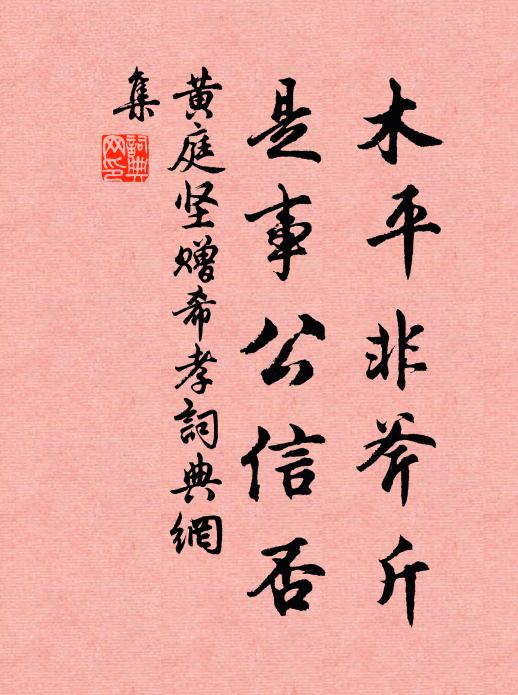 木平非斧斤
是事公信否
黄庭坚赠希孝詞典網
集
詞典
网印